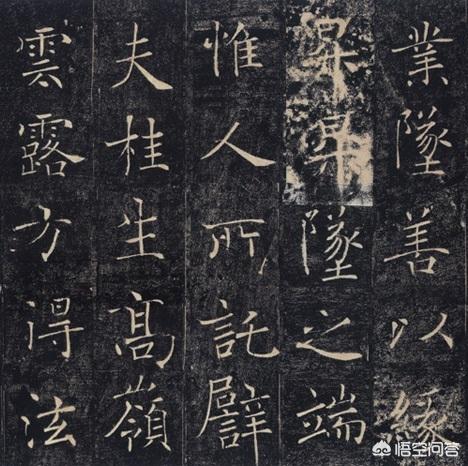 業墜善以緣
昇昇墜之端
惟人所託譬
夫桂生髙嶺
雲露方得泫
悟空问答